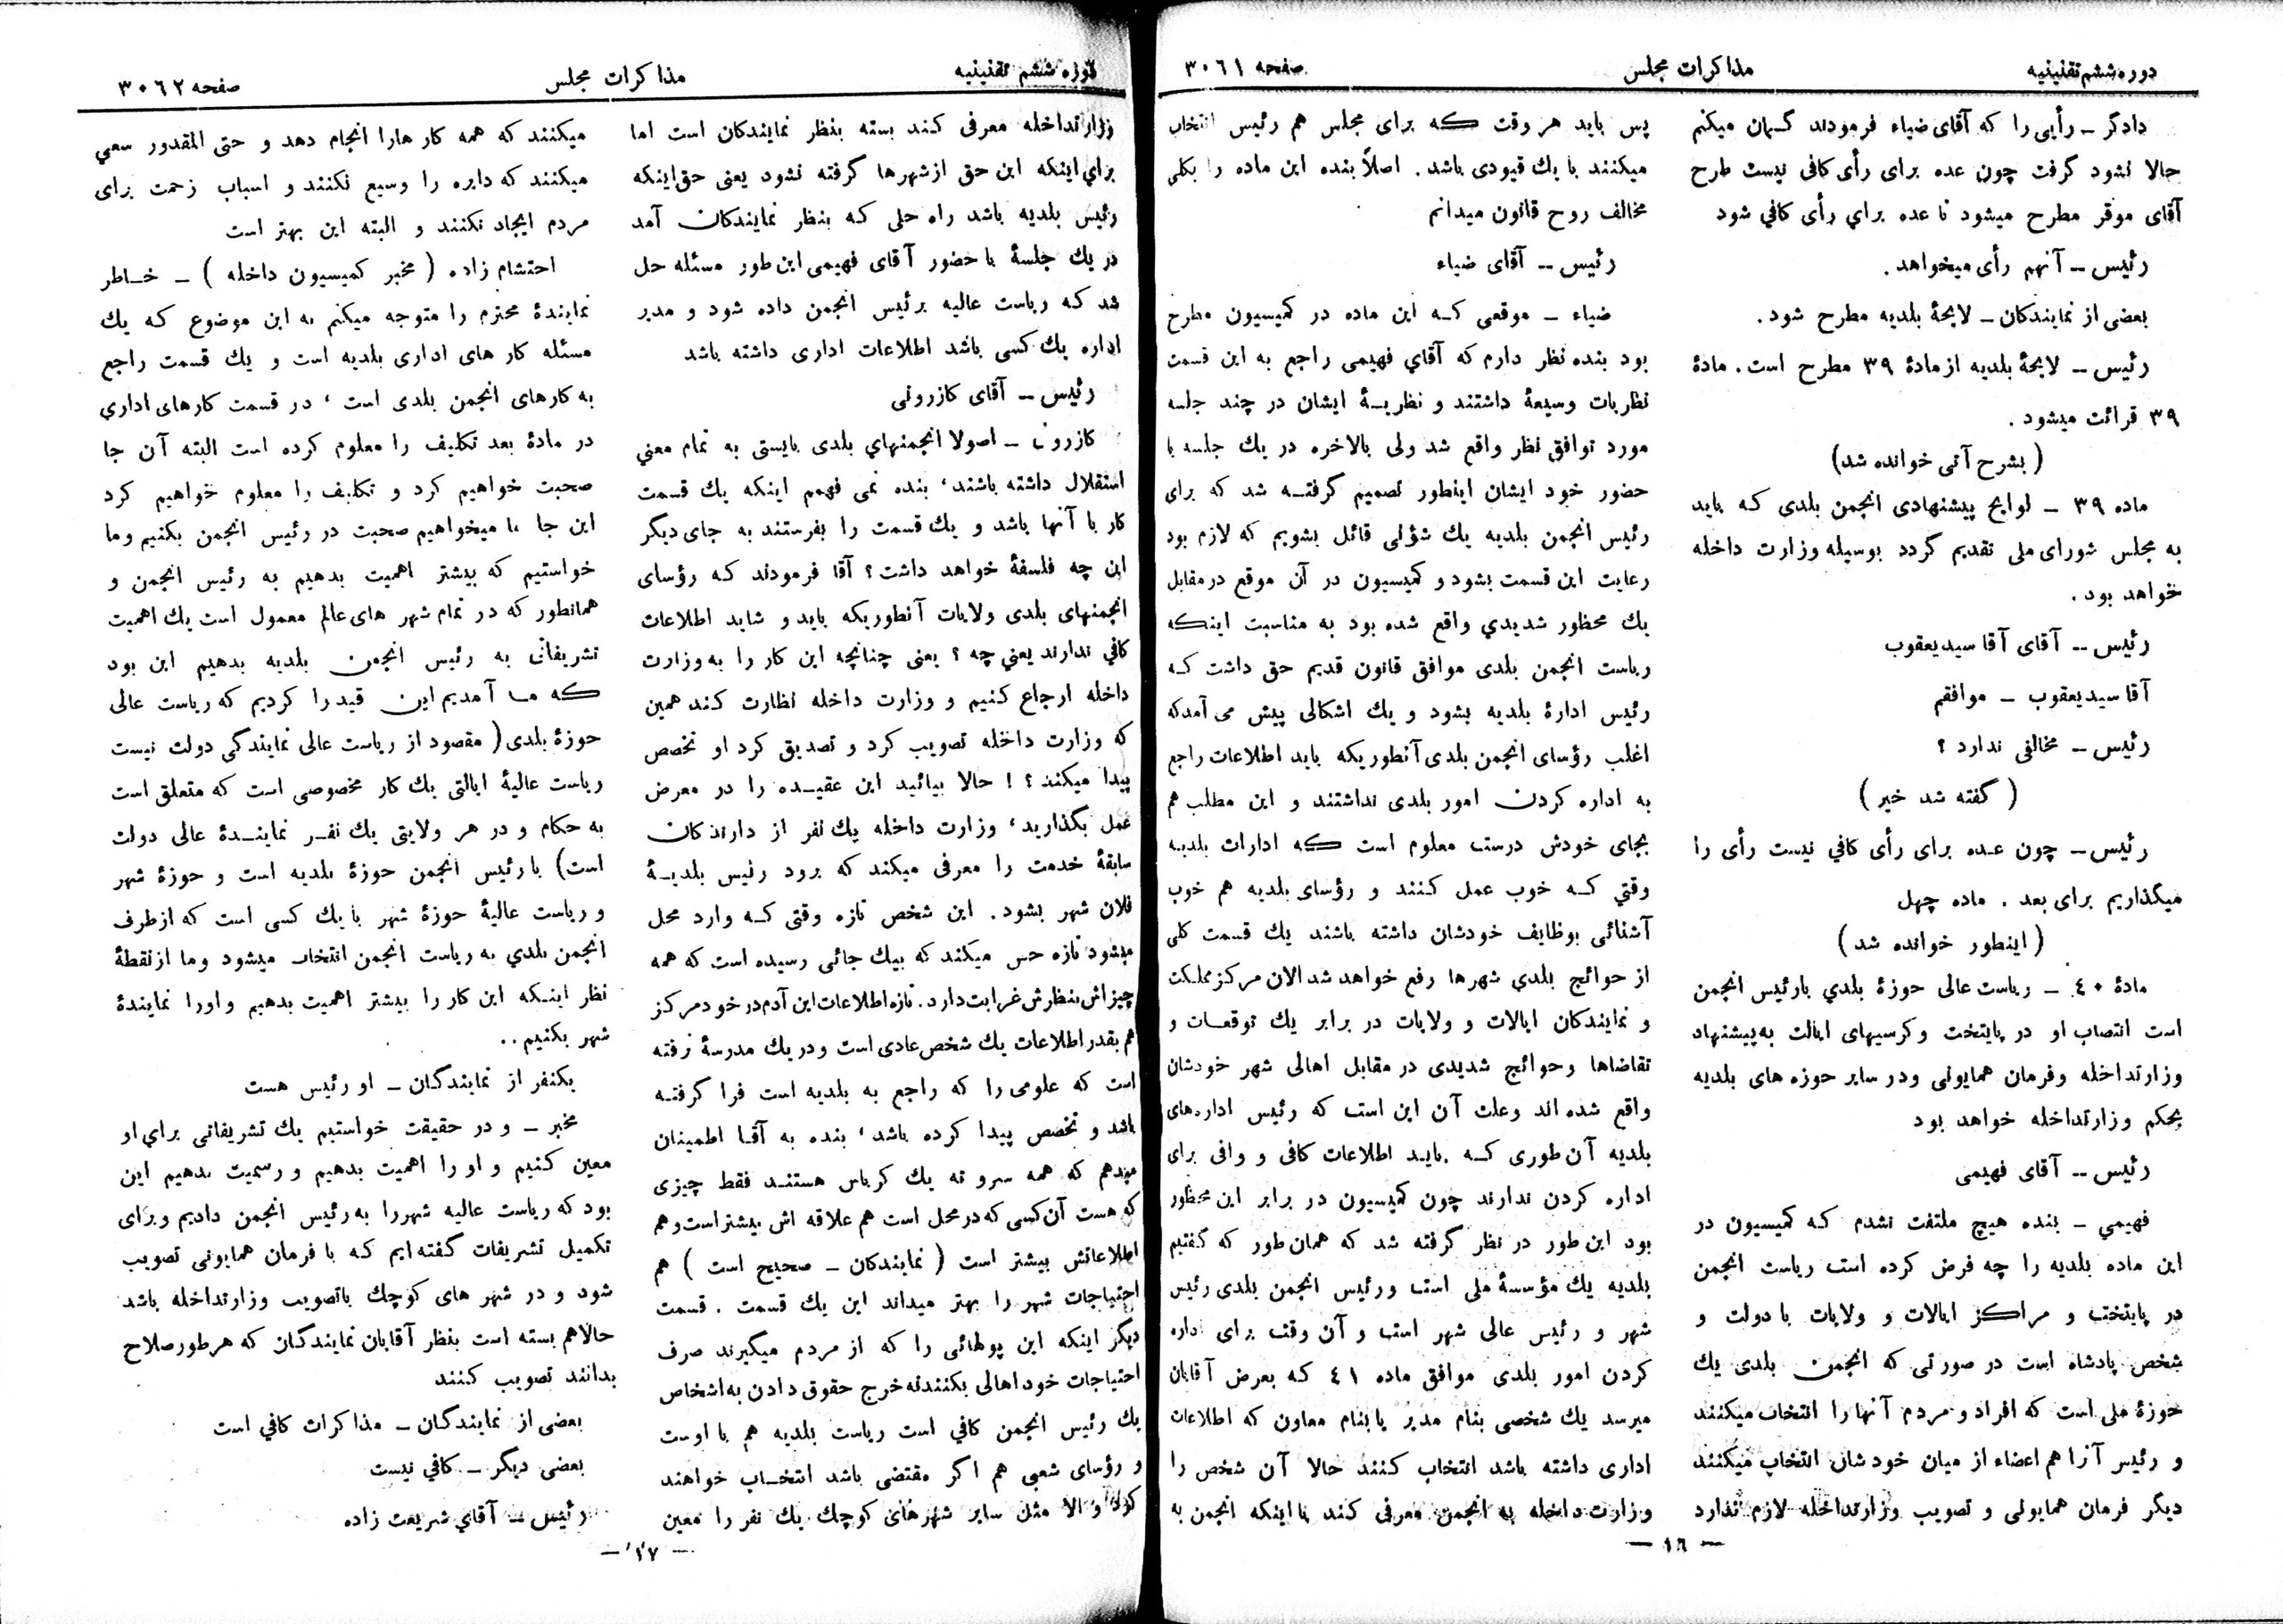 دوره ششم تقنینیه
مذاکرات مجلس
صفحه ۳۰۶۱
دادگر ـ رأیی را که آقای ضیاء فرمودند گمان میکنم
حالا نشود گرفت چون عده برای رأی کافی نیست طرح
آقای موقر مطرح میشود تا عده برای رأی کافی شود
رئیس ــ آنهم رأی میخواهد.
بعضی از نمایندکان ـ لایحهٔ بلدیه مطرح شود.
رئیس ــ لایحهٔ بلدیه از مادهٔ ۳۹ مطرح است. مادهٔ
۳۹ قرائت میشود.
(بشرح آتی خوانده شد)
ماده ۳۹ ـ لوایح پیشنهادی انجمن بلدی که باید
به مجلس شورای ملی تقدیم گردد بوسیله وزارت داخله
خواهد بود.
رئیس ــ آقای آقا سید یعقوب
آقا سید یعقوب ـ موافقم
رئیس ــ مخالفی ندارد؟
(گفته شد خیر)
رئیس ـ چون عده برای رأی کافی نیست رأی را
میگذاریم برای بعد. ماده چهل
(اینطور خوانده شد)
مادهٔ ۴۰ ـ ریاست عالی حوزهٔ بلدی با رئیس انجمن
است انتصاب او در پایتخت و کرسیهای ایالت به پیشنهاد
وزارتداخله وفرمان همایونی ودر سایر حوزه های بلدیه
بحکم وزارتداخله خواهد بود
رئیس ــ آقای فهیمی
فهیمی ـ بنده هیچ ملتفت نشدم که کمیسیون در
این ماده بلدیه را چه فرض کرده است ریاست انجمن
در پایتخت و مراکز ایالات و ولایات با دولت و
شخص پادشاه است در صورتی که انجمن بلدی یك
حوزهٔ ملی است که افراد و مردم آنها را انتخاب میکنند
و رئیس آنرا هم اعضاء از میان خودشان انتخاب میکنند
دیگر فرمان همایونی و تصویب وزارتداخله لازم ندارد
پس باید هر وقت که برای مجلس هم رئیس انتخاب
میکنند با یك قیودی باشد. اصلاً بنده این ماده را بکلی
مخالف روح قانون میدانم
رئیس ــ آقای ضیاء
ضیاء ـ موقعی که این ماده در کمیسیون مطرح
بود بنده نظر دارم که آقای فهیمی راجع به این قسمت
نظریات وسیعهٔ داشتند و نظریهٔ ایشان در چند جلسه
مورد توافق نظر واقع شد ولی بالاخره در یك جلسه با
حضور خود ایشان اینطور تصمیم گرفته شد که برای
رئیس انجمن بلدیه یك شؤنی قائل بشویم که لازم بود
رعایت این قسمت بشود و کمیسیون در آن موقع در مقابل
یك محظور شدیدی واقع شده بود به مناسبت اینکه
ریاست انجمن بلدی موافق قانون قدیم حق داشت که
رئیس ادارهٔ بلدیه بشود و یك اشکالی پیش می آمد که
اغلب رؤسای انجمن بلدی آنطوریکه باید اطلاعات راجع
به اداره کردن امور بلدی نداشتند و این مطلب هم
بجای خودش درست معلوم است که ادارات بلدیه
وقتی که خوب عمل کنند و رؤسای بلدیه هم خوب
آشنائی بوظایف خودشان داشته باشند یك قسمت کلی
از حوائج بلدی شهرها رفع خواهد شد الان مرکز مملکت
و نمایندکان ایالات و ولایات در برابر یك توقعات و
تقاضاها وحوائج شدیدی در مقابل اهالی شهر خودشان
واقع شده اند وعلت آن این است که رئیس اداره‌های
بلدیه آن طوری که باید اطلاعات کافی و وافی برای
اداره کردن ندارند چون کمیسیون در برابر این محظور
بود این طور در نظر گرفته شد که همان طور که گفتیم
بلدیه یك مؤسسهٔ ملی است ورئیس انجمن بلدی رئیس
شهر و رئیس عالی شهر است و آن وقت برای اداره
کردن امور بلدی موافق ماده ۴۱ که بعرض آقایان
میرسد یك شخصی بنام مدیر یا بنام معاون که اطلاعات
اداری داشته باشد انتخاب کنند حالا آن شخص را
وزارت داخله به انجمن معرفی کند یا اینکه انجمن به
ــ ۱۶ ــ
دوره ششم تقنینیه
مذاکرات مجلس
صفحه ۳۰۶۲
وزارتداخله معرفی کند بسته بنظر نمایندکان است اما
برای اینکه این حق از شهرها گرفته نشود یعنی حق اینکه
رئیس بلدیه باشد راه حلی که بنظر نمایندکان آمد
در یك جلسهٔ با حضور آقای فهیمی این طور مسئله حل
شد که ریاست عالیه برئیس انجمن داده شود و مدیر
اداره یك کسی باشد اطلاعات اداری داشته باشد
رئیس ــ آقای کازرونی
کازرونی ـ اصولا انجمنهای بلدی بایستی به تمام معنی
استقلال داشته باشند، بنده نمی فهمم اینکه یك قسمت
کار با آنها باشد و یك قسمت را بفرستند به جای دیگر
این چه فلسفهٔ خواهد داشت؟ آقا فرمودند که رؤسای
انجمنهای بلدی ولایات آنطوریکه باید و شاید اطلاعات
کافی ندارند یعنی چه؟ یعنی چنانچه این کار را به وزارت
داخله ارجاع کنیم و وزارت داخله نظارت کند همین
که وزارت داخله تصویب کرد و تصدیق کرد او تخصص
پیدا میکند؟! حالا بیائید این عقیده را در معرض
عمل بگذارید، وزارت داخله یك نفر از دارندکان
سابقهٔ خدمت را معرفی میکند که برود رئیس بلدیهٔ
فلان شهر بشود. این شخص تازه وقتی که وارد محل
میشود تازه حس میکند که بیك جائی رسیده است که همه
چیز اش بنظرش غرابت دارد. تازه اطلاعات این آدم در خود مرکز
هم بقدر اطلاعات یك شخص عادی است ودر یك مدرسهٔ نرفته
است که علومی را که راجع به بلدیه است فرا گرفته
باشد و تخصص پیدا کرده باشد، بنده به آقا اطمینان
میدهم که همه سرو ته یك کرباس هستند فقط چیزی
که هست آن کسی که در محل است هم علاقه اش بیشتر است و هم
اطلاعاتش بیشتر است (نمایندکان ـ صحیح است) هم
احتیاجات شهر را بهتر میداند این یك قسمت. قسمت
دیگر اینکه این پولهائی را که از مردم میگیرند صرف
احتیاجات خود اهالی بکنند نه خرج حقوق دادن به اشخاص
یك رئیس انجمن کافی است ریاست بلدیه هم با اوست
و رؤسای شعبی هم اگر مقتضی باشد انتخاب خواهند
کرد والا مثل سایر شهرهای کوچك یك نفر را معین
میکنند که همه کارهارا انجام دهد و حتی المقدور سعی
میکنند که دایره را وسیع نکنند و اسباب زحمت برای
مردم ایجاد نکنند و البته این بهتر است
احتشام زاده (مخبر کمیسیون داخله) ـ خاطر
نمایندهٔ محترم را متوجه میکنم به این موضوع که یك
مسئله کار های اداری بلدیه است و یك قسمت راجع
به کارهای انجمن بلدی است، در قسمت کارهای اداری
در مادهٔ بعد تکلیف را معلوم کرده است البته آن جا
صحبت خواهیم کرد و تکلیف را معلوم خواهیم کرد
این جا ما میخواهیم صحبت در رئیس انجمن بکنیم وما
خواستیم که بیشتر اهمیت بدهیم به رئیس انجمن و
همانطور که در تمام شهر های عالم معمول است یك اهمیت
تشریفاتی به رئیس انجمن بلدیه بدهیم این بود
که ما آمدیم این قید را کردیم که ریاست عالی
حوزهٔ بلدی (مقصود از ریاست عالی نمایندگی دولت نیست
ریاست عالیهٔ ایالتی یك کار مخصوصی است که متعلق است
به حکام و در هر ولایتی یك نفر نمایندهٔ عالی دولت
است) با رئیس انجمن حوزهٔ بلدیه است و حوزهٔ شهر
و ریاست عالیهٔ حوزهٔ شهر با یك کسی است که از طرف
انجمن بلدی به ریاست انجمن انتخاب میشود وما از نقطهٔ
نظر اینکه این کار را بیشتر اهمیت بدهیم و اورا نمایندهٔ
شهر بکنیم..
یکنفر از نمایندگان ـ او رئیس هست
مخبر ـ و در حقیقت خواستیم یك تشریفاتی برای او
معین کنیم و او را اهمیت بدهیم و رسمیت بدهیم این
بود که ریاست عالیه شهر را به رئیس انجمن دادیم و برای
تکمیل تشریفات گفته ایم که با فرمان همایونی تصویب
شود و در شهر های کوچك باتصویب وزارتداخله باشد
حالاهم بسته است بنظر آقایان نمایندگان که هر طور صلاح
بدانند تصویب کنند
بعضی از نمایندگان ـ مذاکرات کافی است
بعضی دیگر ـ کافی نیست
رئیس ــ آقای شریعت زاده
ــ ۱۷ ــ